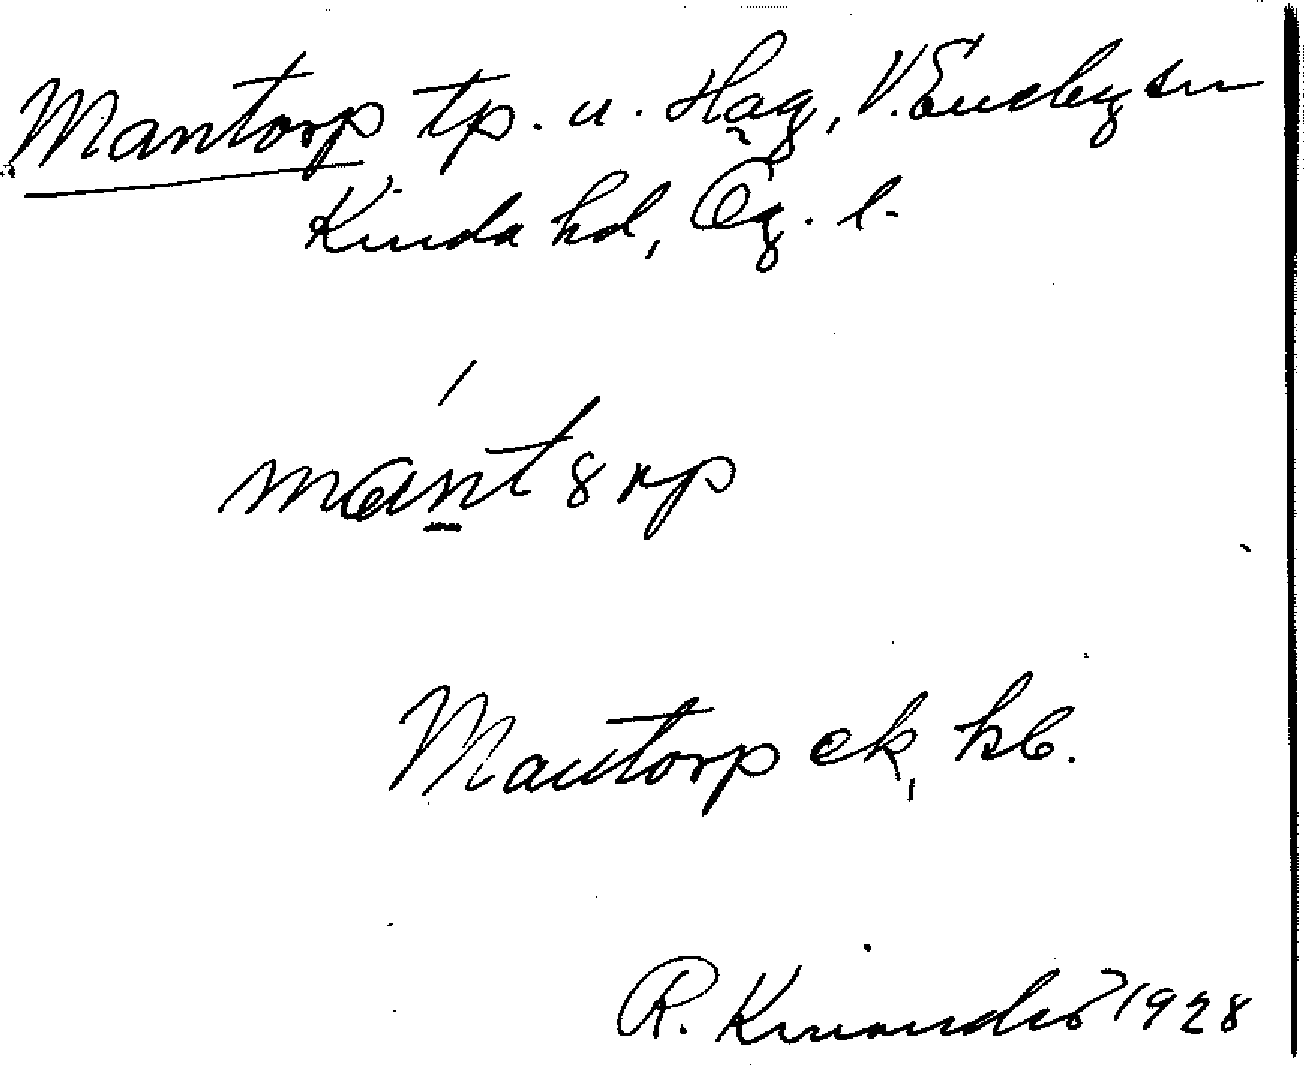 Mantorp tp. u. Hag, V. Eneby sn
Kinda hd, Ög. l.
mant8rp
Mantorp ek, kb.
R. 1928